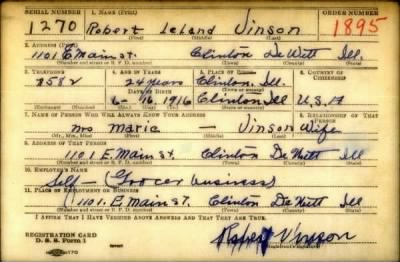 SERIAL NUMBER 1. NAME (Print) ORDER NUMBER
1270 Robert Leland Vinson 1895
(First) (Middle) (Last)
2. ADDRESS (Print)
1101 E Main St. Clinton De Witt Ill.
(Number and street or R. F. D. number) (Town) (County) (State)
3. TELEPHONE 4. AGE IN YEARS 5. PLACE OF BIRTH 6. COUNTRY OF CITIZENSHIP
858 2 24 years Clinton, Ill.
DATE OF BIRTH (Town or county)
6-16-1916 Clinton Ill U.S.A
(Exchange) (Number) (Mo.) (Day) (Yr.) (State or country)
7. NAME OF PERSON WHO WILL ALWAYS KNOW YOUR ADDRESS 8. RELATIONSHIP OF THAT PERSON
Mrs Marie — Vinson Wife
(Mr., Mrs., Miss) (First) (Middle) (Last)
9. ADDRESS OF THAT PERSON
1101 E. Main St. Clinton De Witt Ill
(Number and street or R. F. D. number) (Town) (County) (State)
10. EMPLOYER'S NAME
Self - (Grocer business)
11. PLACE OF EMPLOYMENT OR BUSINESS
1101 E. Main St. Clinton De Witt Ill
(Number and street or R. F. D. number) (Town) (County) (State)
I AFFIRM THAT I HAVE VERIFIED ABOVE ANSWERS AND THAT THEY ARE TRUE.
REGISTRATION CARD
D. S. S. Form 1 Robert Vinson